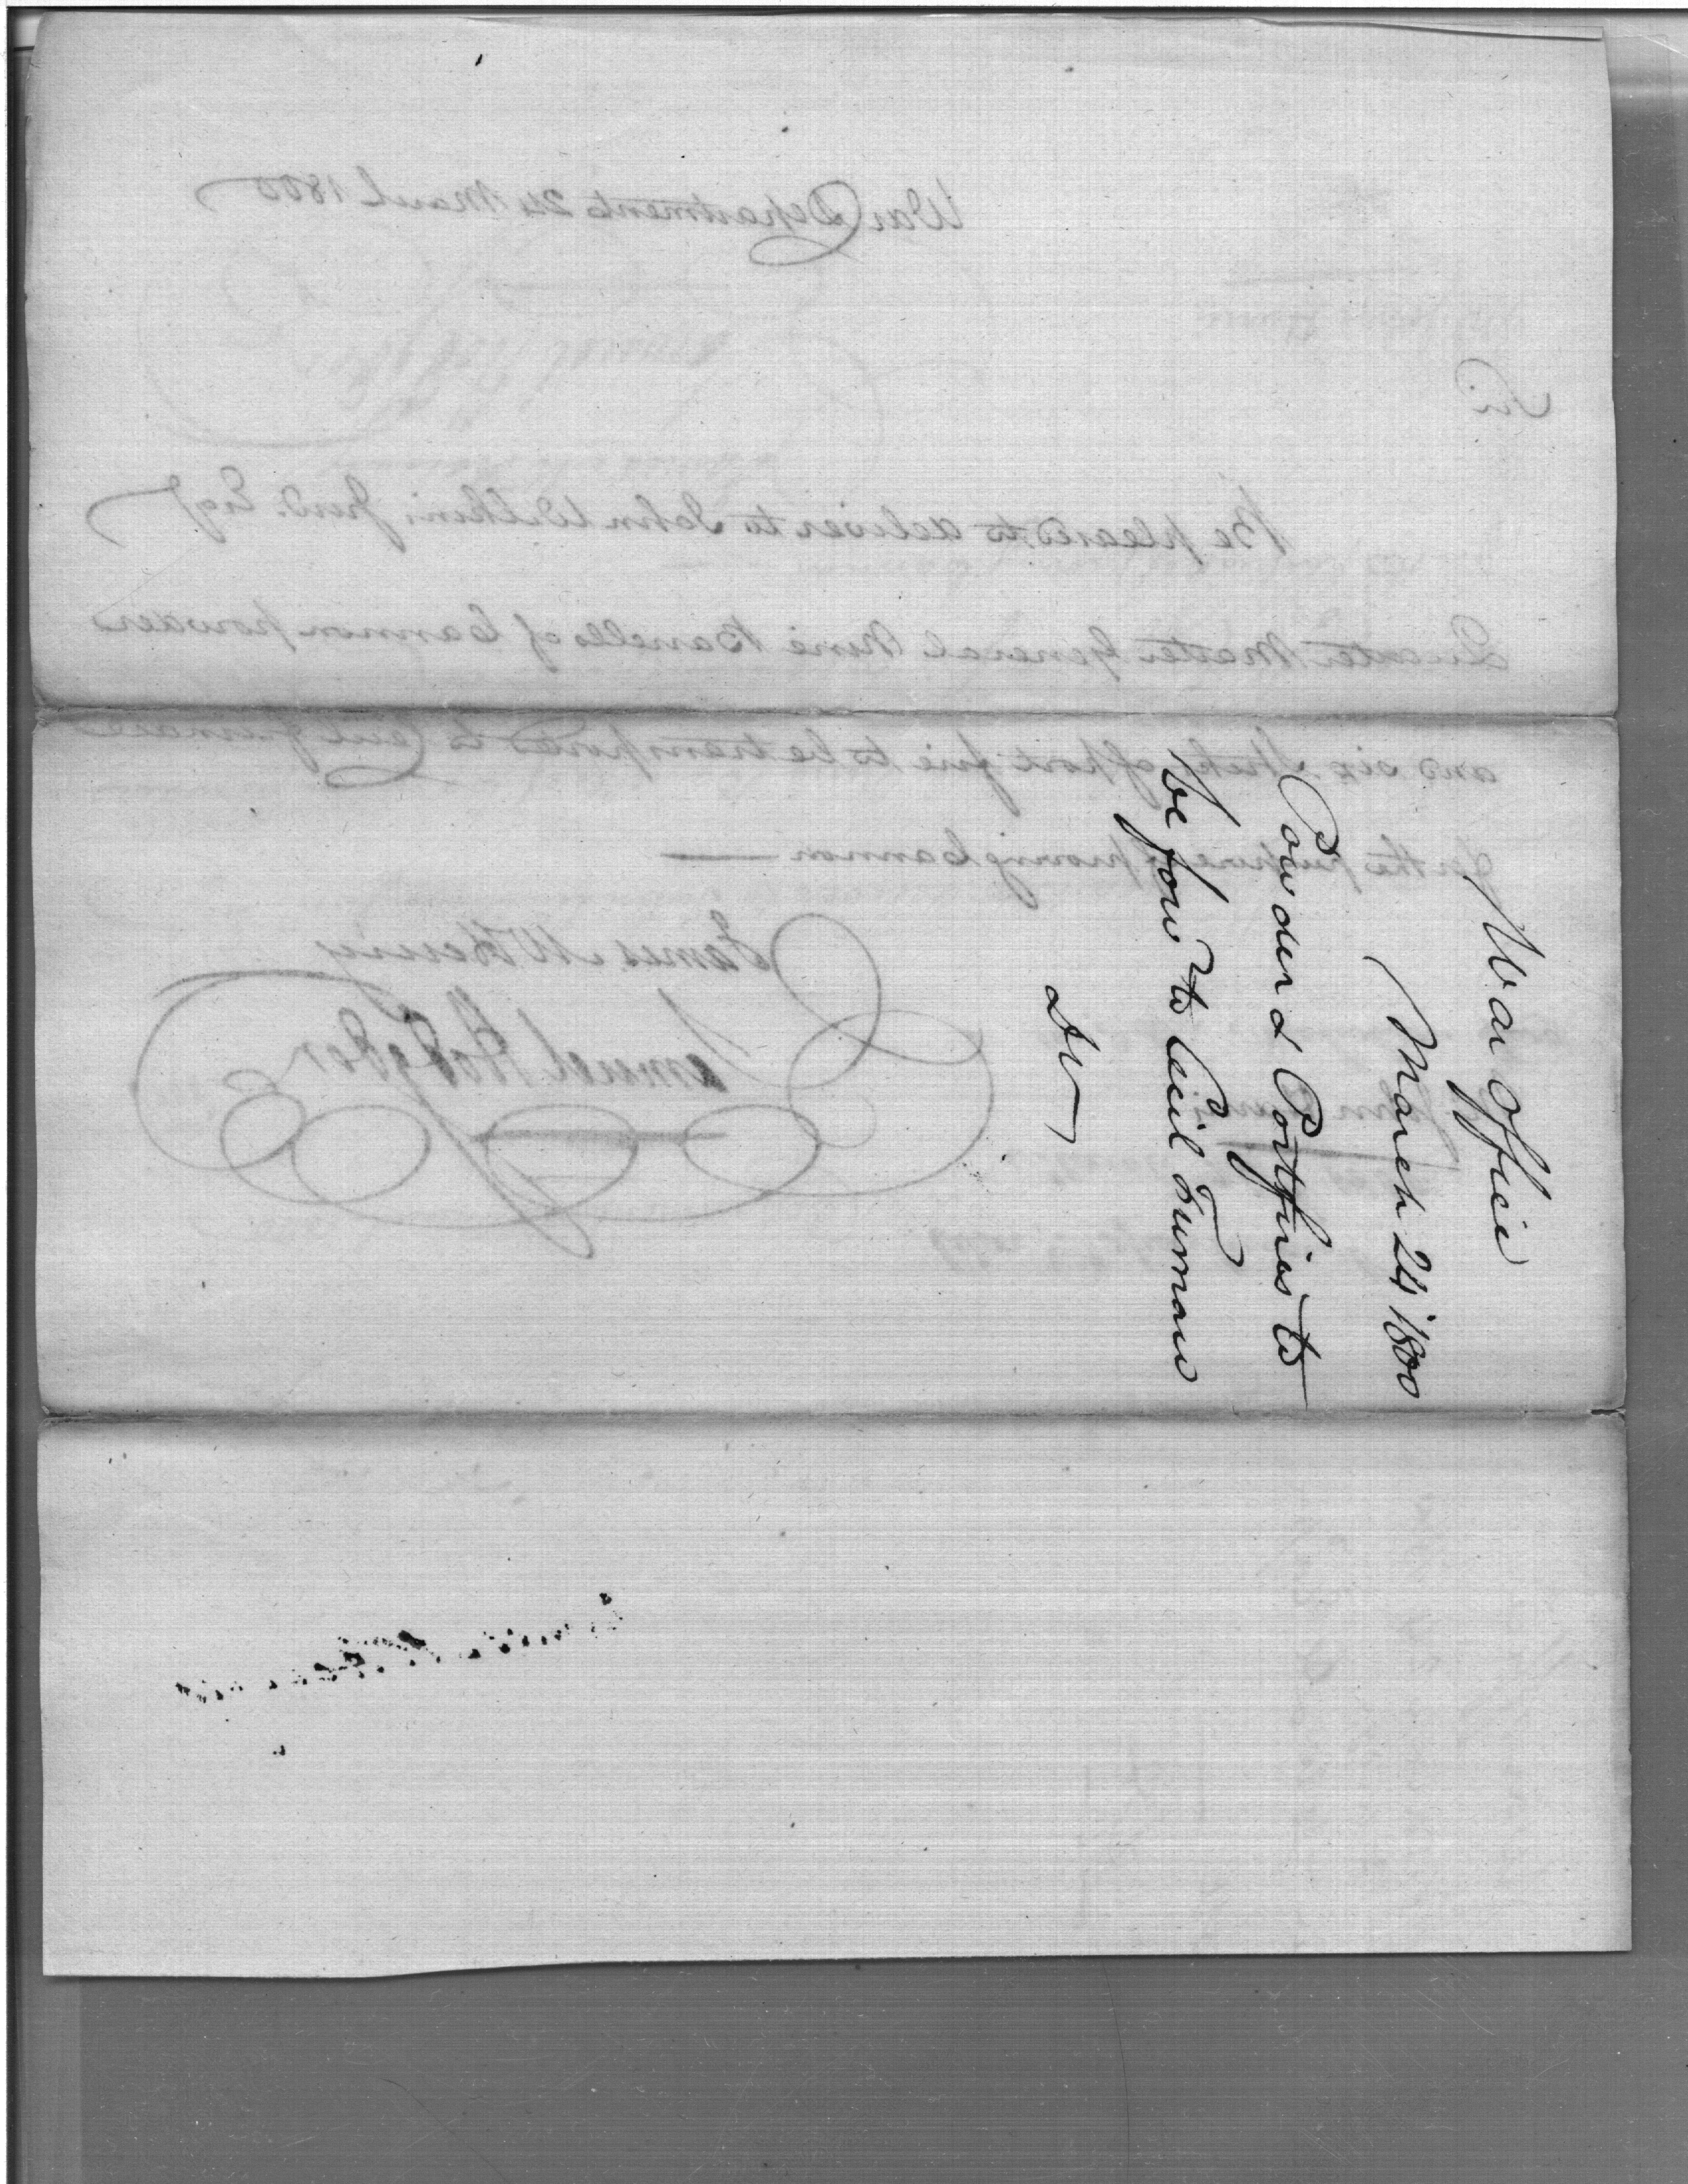 War Office
March 24 1800
Powder & Portfires to
be forw.d to Cecil Furnace
War Department 24 March 1800
Sir
Be pleased to deliver to John Wilkins Jun.r Esq.r
Quarter Master General Nine Barrells of Cannon powder
and six of port fire to be transported to Cecil Furnace
for the purpose of proving Cannon
James McHenry
Samuel Hodgdon